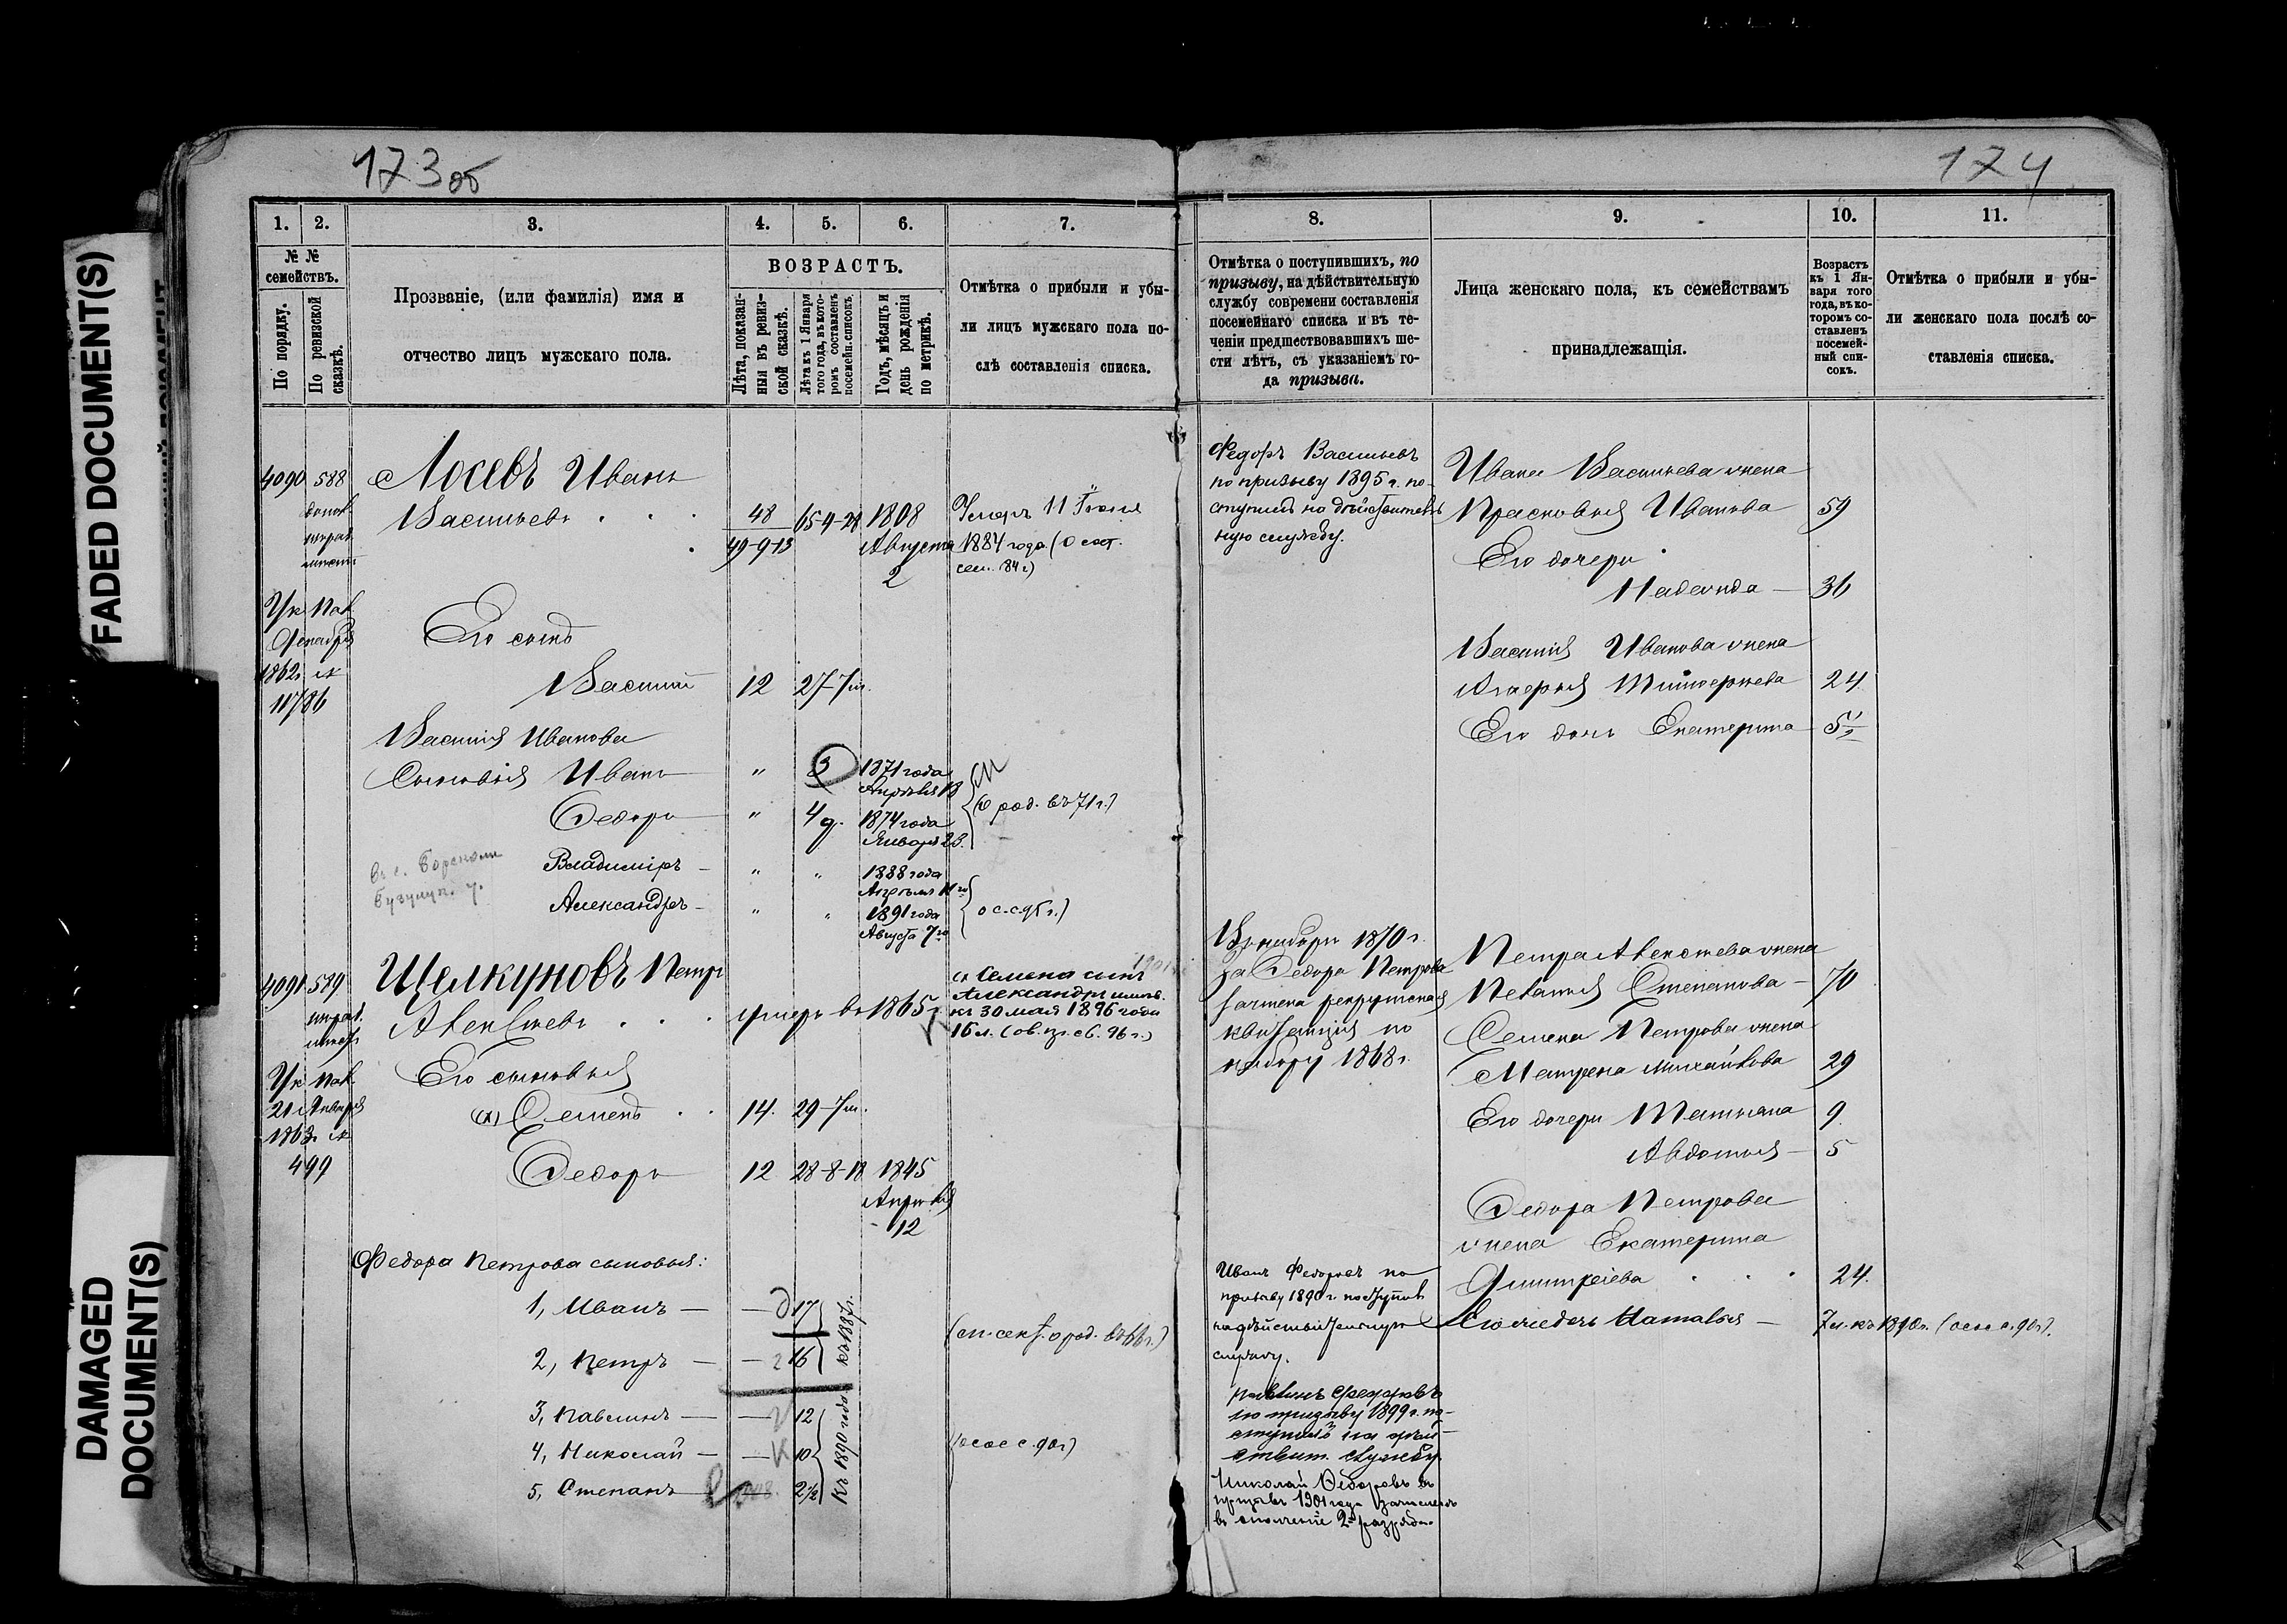 FADED DOCUMENT(S)
DAMAGED
DOCUMENT(S)
173об
174
1.
2.
3.
4.
5.
6.
7.
№ №
семействъ.
По порядку.
По ревизской
сказкѣ.
Прозваніе, (или фамилія) имя и
отчество лицъ мужскаго пола.
ВОЗРАСТЪ.
Лѣта, показан-
ныя въ ревиз-
ской сказкѣ.
Лѣта къ 1 Января
того года, въ кото-
ромъ составленъ
посемейн. списокъ.
Годъ, мѣсяцъ и
день рожденія
по метрикѣ.
Отмѣтка о прибыли и убы-
ли лицъ мужскаго пола по-
слѣ составленія списка.
4090 588
Лосевъ Иванъ
Васильевъ . . .
48
49-9-13
65-4-28
1808
Августа
2
Умеръ 11 Іюня
1884 года (о сост.
сем. 84 г)
Ук Пал
Декабря
1862 г
11786
Его сынъ
Василій 12 27-7м.
Василія Иванова
Сыновья Иванъ " 3 1871 года
Апрѣля 13
Федоръ " 4 д. 1874 года
Января 28.
(о род. въ 71 г.)
въ с. Борскомъ
Бузулук. у.
Владиміръ - " " 1888 года
Александръ - " " 1891 года
Августа 7го
о с. с. 95 г.)
4091 589
Щелкуновъ Петръ
умеръ въ 1865 г.
Семена сынъ
Александръ
къ 30 мая 1896 года
16 л.
Ук Пал
21 Января
1863
499
Его сыновья
Семенъ . . 14. 29-7м.
Федоръ 12 28-8-18 1845
Апрѣля
12
Федора Петрова сыновья:
1, Иванъ — 17
2, Петръ — 16
къ 1887 г.
3, Павелъ — 12
4, Николай — 10
5, Степанъ 2½
Къ 1890 году
8.
9.
10.
11.
Отмѣтка о поступившихъ, по
призыву, на дѣйствительную
службу современи составленія
посемейнаго списка и въ те-
ченіи предшествовавшихъ ше-
сти лѣтъ, съ указаніемъ го-
да призыва.
Лица женскаго пола, къ семействамъ
принадлежащія.
Возрастъ
къ 1 Ян-
варя того
года, въ ко-
торомъ со-
ставленъ
посемей-
ный спи-
сокъ.
Отмѣтка о прибыли и убы-
ли женскаго пола послѣ со-
ставленія списка.
Федоръ Васильевъ
по призыву 1895 г. по-
ступилъ на дѣйствитель
ную службу.
Ивана Васильева жена
Прасковья Иванова 59
Его дочери
Надежда — 36
Василія Иванова жена
24
Его дочь Екатерина 5½
Въ наборъ 1870 г.
за Федора Петрова
зачтена рекрутская
квитанція по
набору 1868 г.
Петра жена
Степанова — 70
Семена Петрова жена
Матрена Михайлова 29
Его дочери Татьяна 9
Авдотья — 5
Федора Петрова
жена Екатерина
Дмитріева . . . 24.
Иванъ Федоровъ по
призыву 1890 г. поступилъ
на дѣйствительную
службу.
Наталья — 7 л. къ 1890 г.
Федоровъ
по призыву 1899 г. по-
ступилъ на дѣй-
ствит. службу.
Николай Федоровъ въ
призывъ 1901 года зачисленъ
въ ополченіе 2 разряда